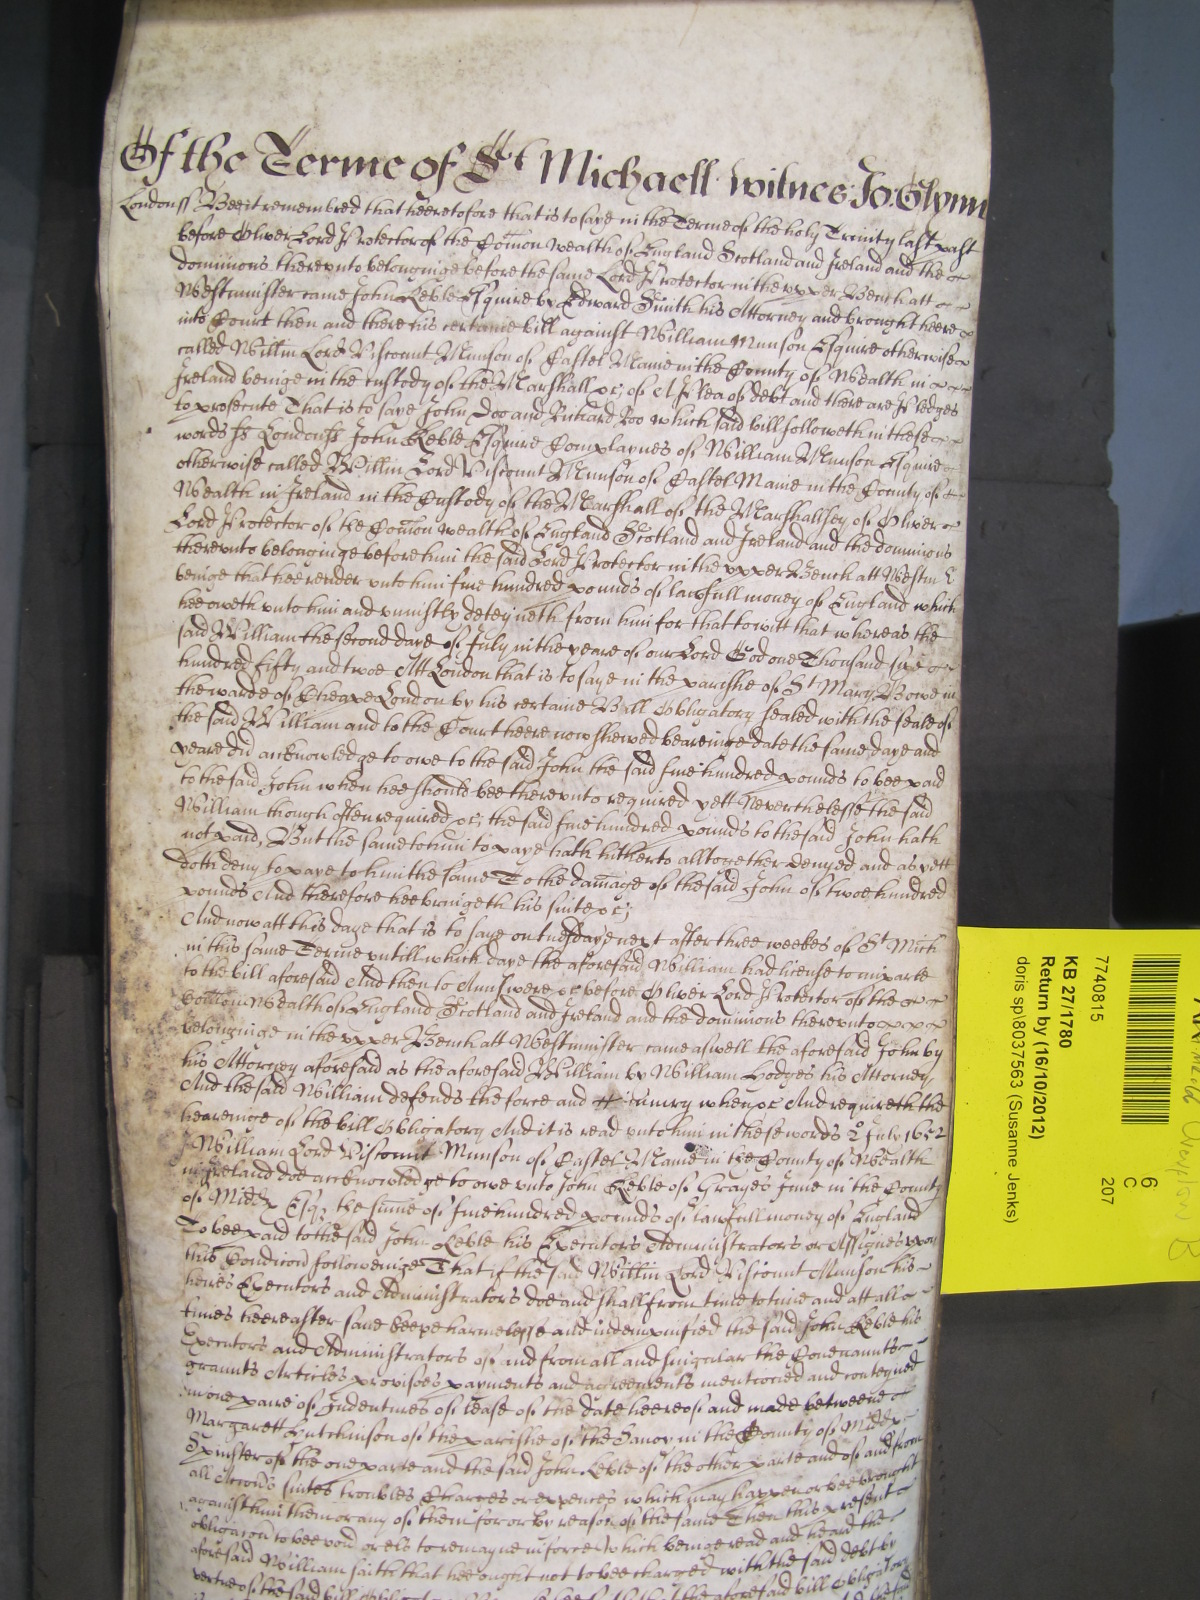 Of the Terme of St Michaell witnes Jo: Glynn
London ss Bee it remembred that heeretofore that is to saye in the Terme of the holy Trinity last past
before Oliver Lord Protector of the Com̄on wealth of England Scotland and Ireland and the
dominions thereunto belonginge before the same Lord Protector in the upper Bench att
Westminister came John Keble Esquire by Edward Smith his Attorney and brought heere
into Court then and there his certaine bill against William Munson Esquire otherwise
called Willm Lord Viscount Munson of Castel Maine in the County of Wealth in
Ireland beinge in the custody of the Marshall &c; of A Plea of debt and there are Pledges
to prosecute That is to saye John Doo and Richard Roo which said bill followeth in these
words ss London ss John Keble Esquire Complaynes of William Munson Esquire
otherwise called Willm Lord Viscount Munson of Castel Maine in the County of
Wealth in Ireland in the Custody of the Marshall of the Marshallsey of Oliver
Lord Protector of the Com̄on wealth of England Scotland and Ireland and the dominions
thereunto belonginge before him the said Lord Protector in the upper Bench att Westm
beinge that hee render unto him five hundred pounds of lawfull money of England which
hee oweth unto him and uniustly deteyneth from him for that to witt that whereas the
said William the second daye of July in the yeare of our Lord God one Thousand sixe
hundred fifty and twoe Att London that is to saye in the parishe of St Mary Bowe in
the warde of Cheape London by his certaine Bill Obligatory sealed with the seale of
the said William and to the Court heere now shewed beareinge date the same daye and
yeare did acknowledge to owe to the said John the said five hundred pounds to bee paid
to the said John when hee should bee thereunto required yett Neverthelesse the said
William though often required &c; the said five hundred pounds to the said John hath
not paid, But the same to him to paye hath hitherto alltogether denyed and as yett
doth deny to paye to him the same To the dam̄age of the said John of twoe hundred
pounds And therefore hee bringeth his suite &c;
And now att this daye that is to saye on tuesdaye next after three weekes of St Mich
in this same Terme untill which daye the aforesaid William had license to imparle
to the bill aforesaid And then to Answere &c before Oliver Lord Protector of the
Com̄on Wealth of England Scotland and Ireland and the dominions thereunto
belonginge in the upper Bench att Westminster came aswell the aforesaid John by
his Attorney aforesaid as the aforesaid William by William Hodges his Attorney
And the said William defends the force and iniury when &c And requireth the
heareinge of the bill Obligatory And it is read unto him in these words 2° July 1652
I William Lord Viscount Munson of Castel Maine in the County of Wealth
in Ireland doe acknowledge to owe unto John Keble of Grayes Inne in the County
of Midd Esq the sume of five hundred pounds of lawfull money of England
To bee paid to the said John Keble his Executors Administrators or Assignes upon
this Condicōn followeinge That if the said Willm Lord Viscount Munson his
heires Executors and Administrators doe and shall from time to time and att all
times heereafter save keepe harmelesse and indempnified the said John Keble his
Executors and Administrators of and from all and singular the Covenaunts
graunts Articles provisoes payments and agreements mentioned and conteyned
in one paire of Indentures of lease of the date heereof and made betweene
Margarett Hutchinson of the parishe of the Savoy in the County of Midd
Spinster of the one parte and the said John Keble of the other parte and of and from
all Accōns suites troubles Charges or expences which may happen or bee brought
against him them or any of them for or by reason of the same Then this present
obligacōn to bee void or els to remayne in force Which beinge read and heard the
aforesaid William saith that hee ought not to bee charged with the said debt by
vertue of the said bill
7740815
KB 27/1780
Return by (16/10/2012)
doris sp\8037563 (Susanne Jenks)
6
C
207